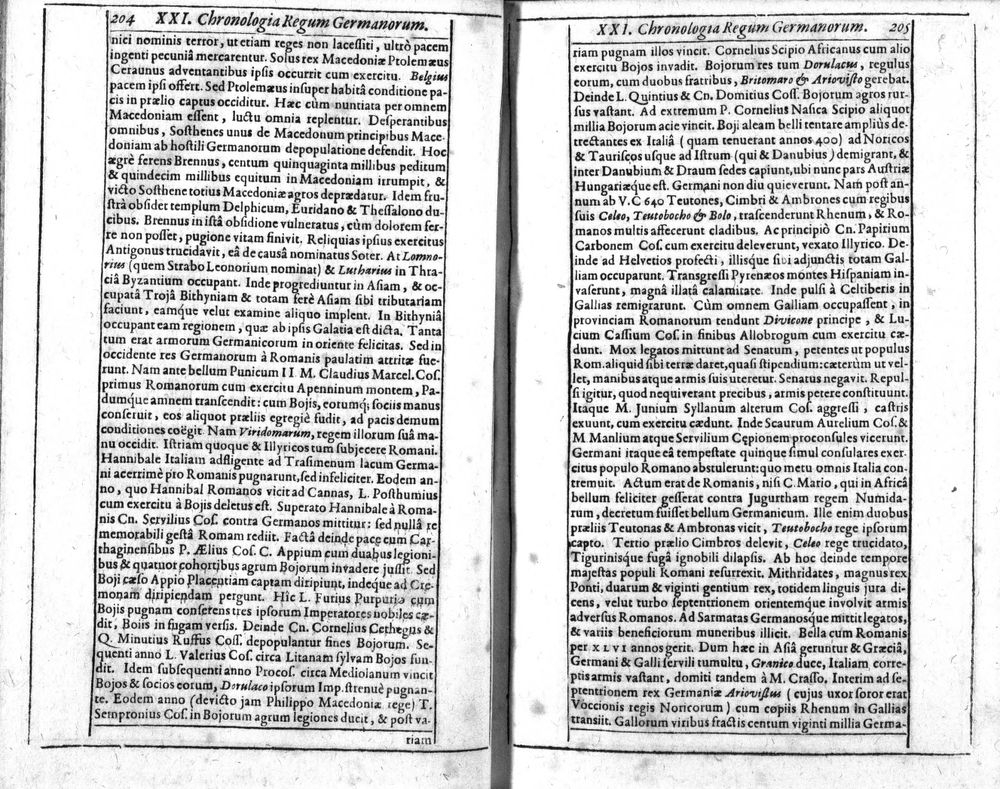 204 XXI. Chronologia Regum Germanorum.
nici nominis terror, ut etiam reges non lacessiti, ultrò pacem
ingenti pecuniâ mercarentur. Solus rex Macedoniæ Ptolemæus
Ceraunus adventantibus ipsis occurrit cum exercitu. Belgius
pacem ipsi offert. Sed Ptolemæus insuper habitâ conditione pa-
cis in prælio captus occiditur. Hæc cùm nuntiata per omnem
Macedoniam essent, luctu omnia replentur. Desperantibus
omnibus, Sosthenes unus de Macedonum principibus Mace-
doniam ab hostili Germanorum depopulatione defendit. Hoc
ægrè ferens Brennus, centum quinquaginta millibus peditum
& quindecim millibus equitum in Macedoniam irrumpit, &
victo Sosthene totius Macedoniæ agros deprædatur. Idem fru-
strà obsidet templum Delphicum, Euridano & Thessalono du-
cibus. Brennus in istâ obsidione vulneratus, cùm dolorem fer-
re non posset, pugione vitam finivit. Reliquias ipsius exercitus
Antigonus trucidavit, eâ de causâ nominatus Soter. At Lomno-
rius (quem Strabo Leonorium nominat) & Lutharius in Thra-
ciâ Byzantium occupant. Inde progrediuntur in Asiam, & oc-
cupatâ Trojâ Bithyniam & totam ferè Asiam sibi tributariam
faciunt, eamque velut examine aliquo implent. In Bithyniâ
occupant eam regionem, quæ ab ipsis Galatia est dicta. Tanta
tum erat armorum Germanicorum in oriente felicitas. Sed in
occidente res Germanorum à Romanis paulatim attritæ fue-
runt. Nam ante bellum Punicum II M. Claudius Marcel. Cos.
primus Romanorum cum exercitu Apenninum montem, Pa-
dumque amnem transcendit: cum Bojis, eorumq; sociis manus
conseruit, eos aliquot præliis egregiè fudit, ad pacis demum
conditiones coëgit. Nam Viridomarum, regem illorum suâ ma-
nu occidit. Istriam quoque & Illyricos tum subjecere Romani.
Hannibale Italiam adfligente ad Trasimenum lacum Germa-
ni acerrimè pro Romanis pugnarunt, sed infeliciter. Eodem an-
no, quo Hannibal Romanos vicit ad Cannas, L. Posthumius
cum exercitu à Bojis deletus est. Superato Hannibale à Roma-
nis Cn. Servilius Cos. contra Germanos mittitur: sed nullâ re
memorabili gestâ Romam rediit. Factâ deinde pace cum Car-
thaginensibus P. Ælius Cos. C. Appium cum duabus legioni-
bus & quatuor cohortibus agrum Bojorum invadere jussit. Sed
Boji cæso Appio Placentiam captam diripiunt, indeque ad Cre-
monam diripiendam pergunt. Hic L. Furius Purpurio cum
Bojis pugnam conserens tres ipsorum Imperatores nobiles cæ-
dit, Boiis in fugam versis. Deinde Cn. Cornelius Cethegus &
Q. Minutius Ruffus Coss. depopulantur fines Bojorum. Se-
quenti anno L. Valerius Cos. circa Litanam sylvam Bojos fun-
dit. Idem subsequenti anno Procos. circa Mediolanum vincit
Bojos & socios eorum, Dorulaco ipsorum Imp. strenuè pugnan-
te. Eodem anno (devicto jam Philippo Macedoniæ rege) T.
Sempronius Cos. in Bojorum agrum legiones ducit, & post va-
riam
XXI. Chronologia Regum Germanorum. 205
riam pugnam illos vincit. Cornelius Scipio Africanus cum alio
exercitu Bojos invadit. Bojorum res tum Dorulacus, regulus
eorum, cum duobus fratribus, Britomaro & Ariovisto gerebat.
Deinde L. Quintius & Cn. Domitius Coss. Bojorum agros rur-
sus vastant. Ad extremum P. Cornelius Nasica Scipio aliquot
millia Bojorum acie vincit. Boji aleam belli tentare ampliùs de-
trectantes ex Italiâ (quam tenuerant annos 400) ad Noricos
& Tauriscos usque ad Istrum (qui & Danubius) demigrant, &
inter Danubium & Draum sedes capiunt, ubi nunc pars Austriæ
Hungariæque est. Germani non diu quieverunt. Nam post an-
num ab V.C 640 Teutones, Cimbri & Ambrones cum regibus
suis Celeo, Teutobocho & Bolo, trascenderunt Rhenum, & Ro-
manos multis affecerunt cladibus. Ac principiò Cn. Papirium
Carbonem Cos. cum exercitu deleverunt, vexato Illyrico. De-
inde ad Helvetios profecti, illisque sibi adjunctis totam Gal-
liam occuparunt. Transgressi Pyrenæos montes Hispaniam in-
vaserunt, magnâ illatâ calamitate. Inde pulsi à Celtiberis in
Gallias remigrarunt. Cùm omnem Galliam occupassent, in
provinciam Romanorum tendunt Divicone principe, & Lu-
cium Cassium Cos. in finibus Allobrogum cum exercitu cæ-
dunt. Mox legatos mittunt ad Senatum, petentes ut populus
Rom. aliquid sibi terræ daret, quasi stipendium: cæterùm ut vel-
let, manibus atque armis suis uteretur. Senatus negavit. Repul-
si igitur, quod nequiverant precibus, armis petere constituunt.
Itaque M. Junium Syllanum alterum Cos. aggressi, castris
exuunt, cum exercitu cædunt. Inde Scaurum Aurelium Cos. &
M Manlium atque Servilium Cępionem proconsules vicerunt.
Germani itaque eâ tempestate quinque simul consulares exer-
citus populo Romano abstulerunt: quo metu omnis Italia con-
tremuit. Actum erat de Romanis, nisi C. Mario, qui in Africâ
bellum feliciter gesserat contra Jugurtham regem Numida-
rum, decretum fuisset bellum Germanicum. Ille enim duobus
præliis Teutonas & Ambronas vicit, Teutobocho rege ipsorum
capto. Tertio prælio Cimbros delevit, Celeo rege trucidato,
Tigurinisque fugâ ignobili dilapsis. Ab hoc deinde tempore
majestas populi Romani resurrexit. Mithridates, magnus rex
Ponti, duarum & viginti gentium rex, totidem linguis jura di-
cens, velut turbo septentrionem orientemque involvit armis
adversus Romanos. Ad Sarmatas Germanosque mittit legatos,
& variis beneficiorum muneribus illicit. Bella cum Romanis
per XLVI annos gerit. Dum hæc in Asiâ geruntur & Græciâ,
Germani & Galli servili tumultu, Granico duce, Italiam corre-
ptis armis vastant, domiti tandem à M. Crasso. Interim ad se-
ptentrionem rex Germaniæ Ariovistus (cujus uxor soror erat
Voccionis regis Noricorum) cum copiis Rhenum in Gallias
transiit. Gallorum viribus fractis centum viginti millia Germa-